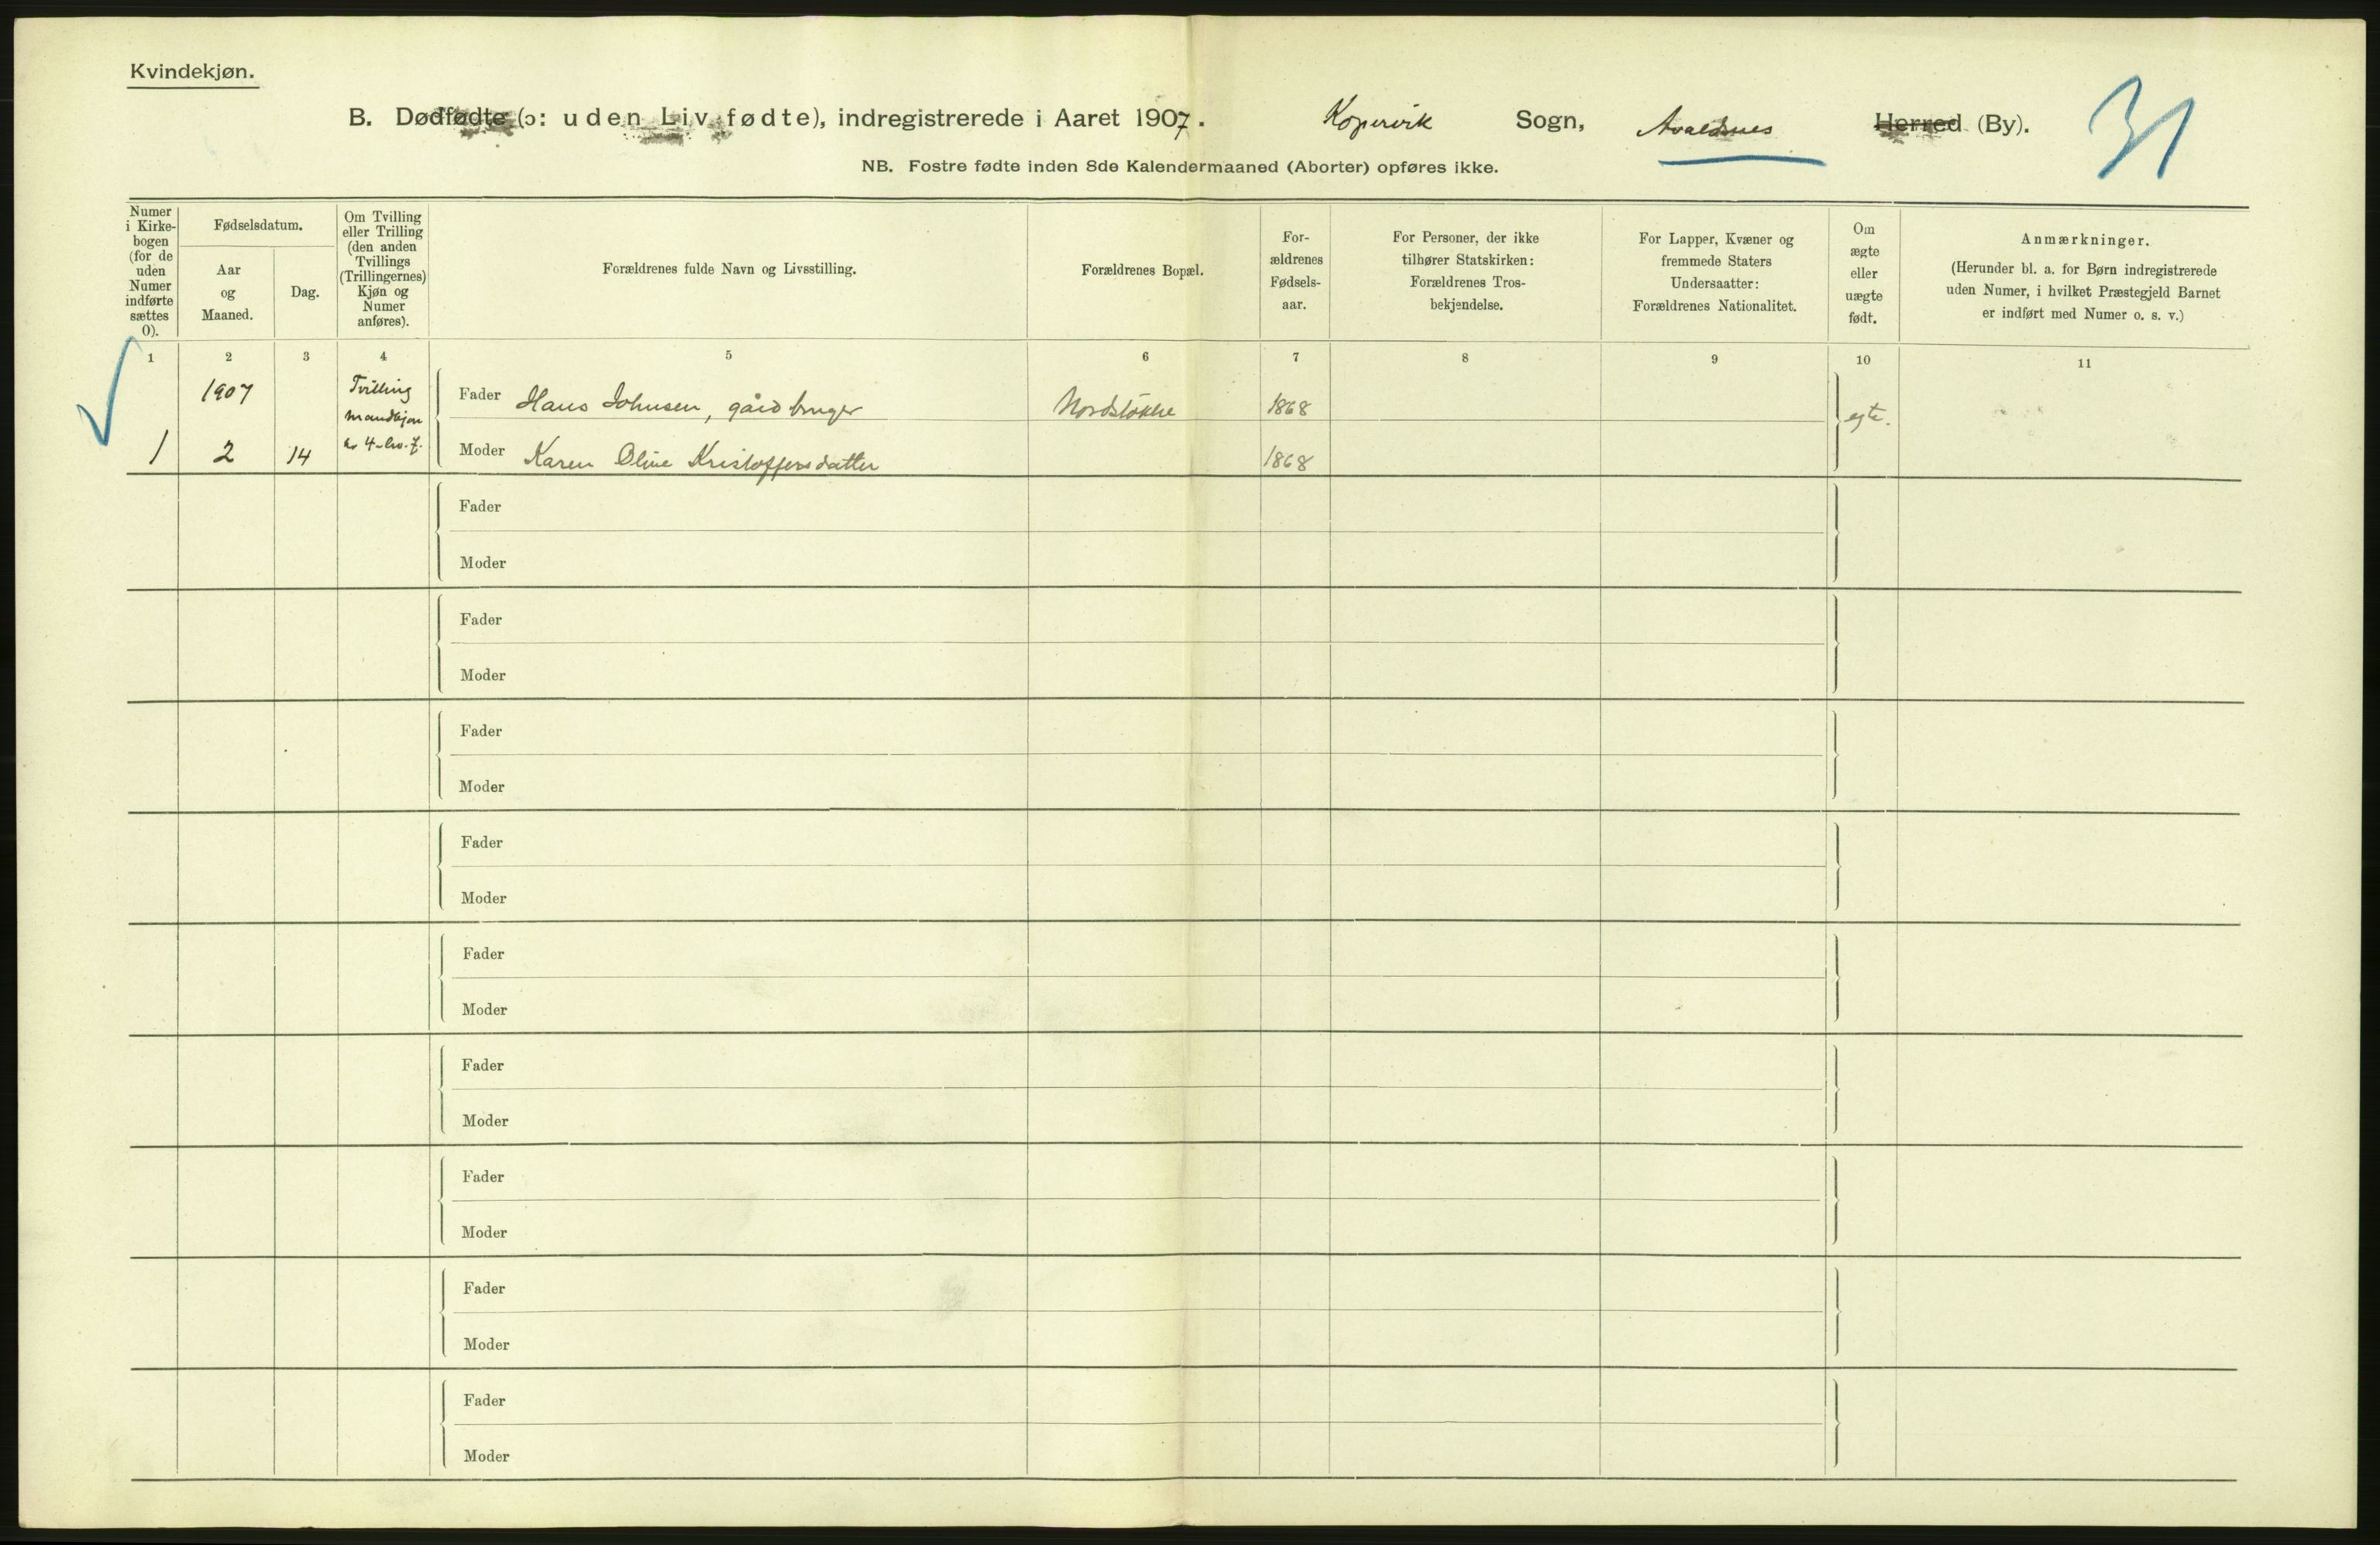 Kvindekjøn.
B. Dødfødte (ɔ: uden Liv fødte), indregistrerede i Aaret 1907. Kopervik Sogn, Avaldsnes Herred (By). 31
NB. Fostre fødte inden 8de Kalendermaaned (Aborter) opføres ikke.
Numer
i Kirke-
bogen
(for de
uden
Numer
indførte
sættes
0).
Fødselsdatum.
Aar
og
Maaned.
Dag.
Om Tvilling
eller Trilling
(den anden
Tvillings
(Trillingernes)
Kjøn og
Numer
anføres).
Forældrenes fulde Navn og Livsstilling.
Forældrenes Bopæl.
For-
ældrenes
Fødsels-
aar.
For Personer, der ikke
tilhører Statskirken:
Forældrenes Tros-
bekjendelse.
For Lapper, Kvæner og
fremmede Staters
Undersaatter:
Forældrenes Nationalitet.
Om
ægte
eller
uægte
født.
Anmærkninger.
(Herunder bl. a. for Børn indregistrerede
uden Numer, i hvilket Præstegjeld Barnet
er indført med Numer o. s. v.)
1 2 3 4 5 6 7 8 9 10 11
1907 Tvilling
mandkjøn
Fader Hans Johnsen, gårdbruger 1868 egte.
1 2 14 Moder Karen Oline Kristoffersdatter 1868
Fader
Moder
Fader
Moder
Fader
Moder
Fader
Moder
Fader
Moder
Fader
Moder
Fader
Moder
Fader
Moder
Fader
Moder